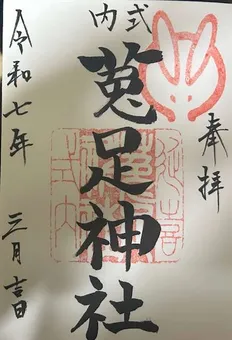 奉拝
式内
菟足神社
令和七年 三月吉日